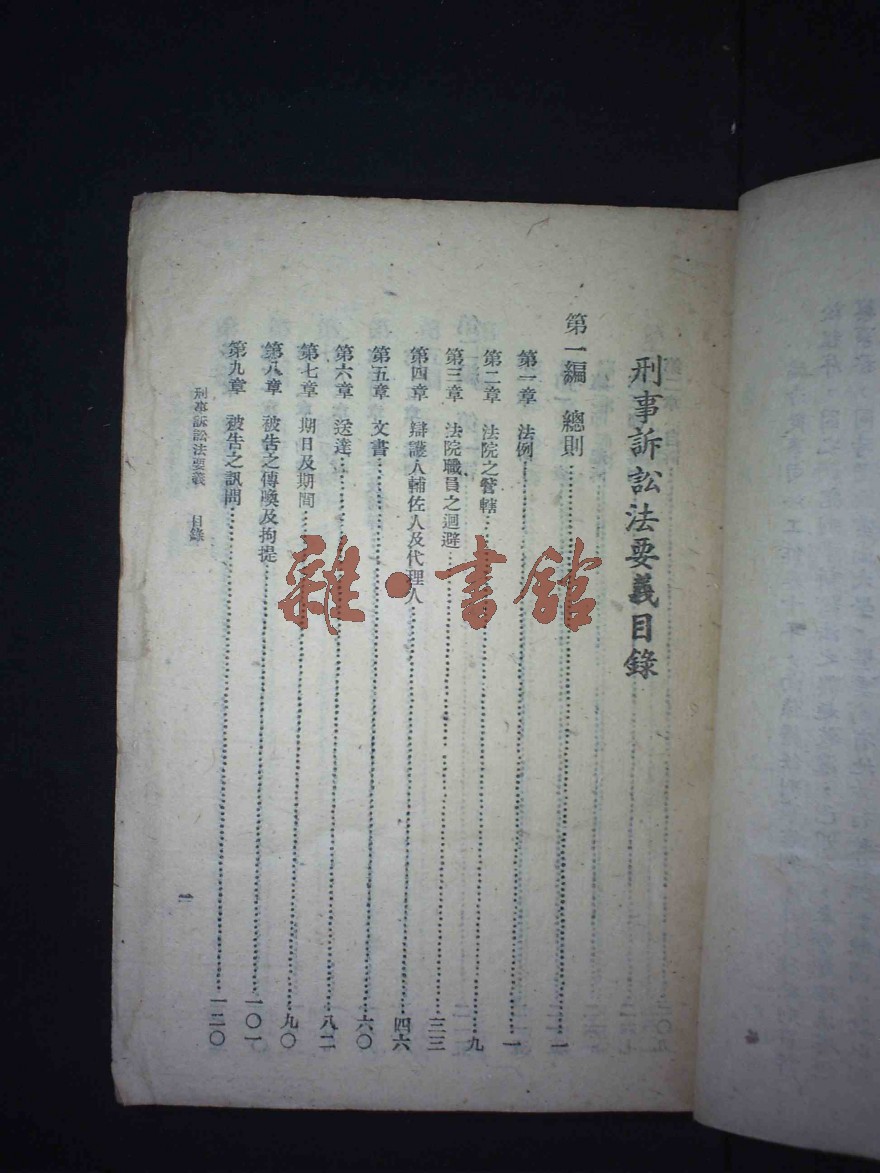 刑事訴訟法要義目錄
第一編 總則……一
第一章 法例……一
第二章 法院之管轄……九
第三章 法院職員之迴避……三三
第四章 辯護人輔佐人及代理人……四六
第五章 文書……六〇
第六章 送達……八二
第七章 期日及期間……九〇
第八章 被告之傳喚及拘提……一〇一
第九章 被告之訊問……一二〇
刑事訴訟法要義 目錄
一
雜·書館